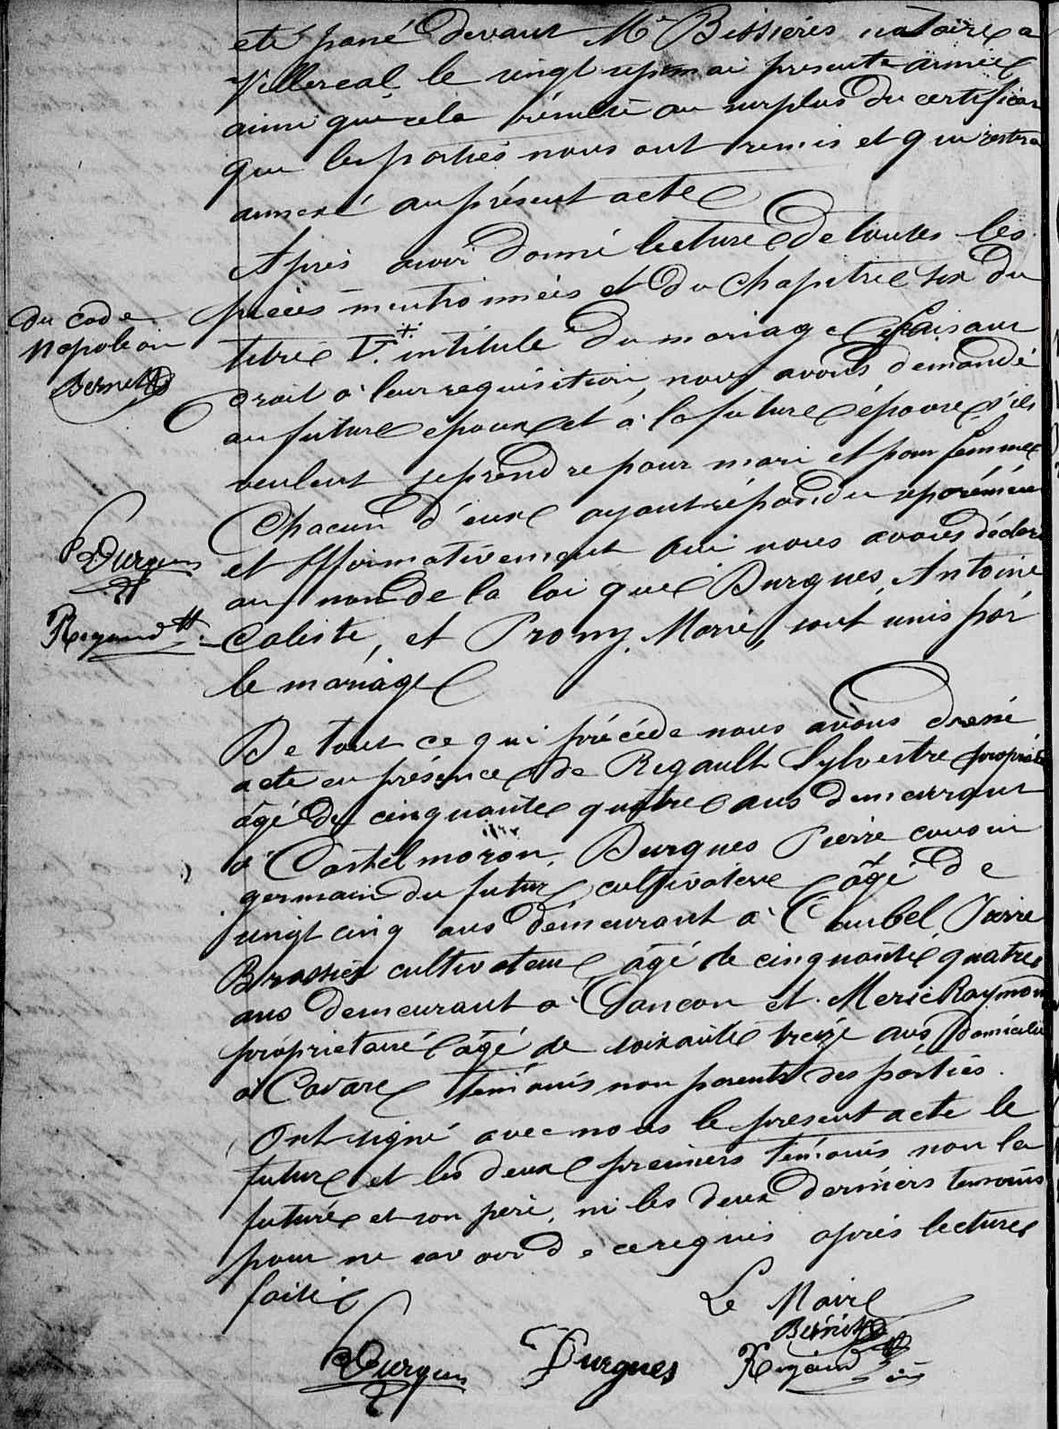 été passé devant Me Bissieres notaire a
Villereal le vingt sept mai presente année
ainsi que cela résulte au surplus du certificat
que les parties nous ont remis et qui restera
annexé au présent acte
Après avoir donné lecture de toutes les
pièces mentionnées et du chapitre six du
du code
Napoleon
Bernet
titre V. + intitulé du mariage faisant
droit à leur requisition, nous avons demandé
au futur epoux et à la future épouse s'ils
veulent se prendre pour mari et pour femme
Chacun d'eux ayant répondu séparément
et affirmativement oui nous avons déclaré
Burgues
au nom de la loi que Burgues, Antoine
Rigaud
Caliste, et Promy, Marie, sont unis par
le mariage
De tout ce qui précéde nous avons dressé
acte en présence de Rigault Sylvestre propriét
âgé de cinquante quatre ans demeurant
à Castelmoron, Burgues Pierre cousin
germain du futur cultivateur âgé de
vingt cinq ans demeurant à Courbel, Pierre
Brassier cultivateur âgé de cinquante quatre
ans demeurant à Doncon et Meric Raymond
propriétaire âgé de soixante treize ans, Domicilié
à Cavarc témoins non parents des parties.
Ont signé avec nous le present acte le
futur et les deux premiers témoins non la
future et son père, ni les deux derniers temoins
pour ne savoir de ce requis après lecture
faite
Le Maire
Bernet
Burgues Burgues Rigaud